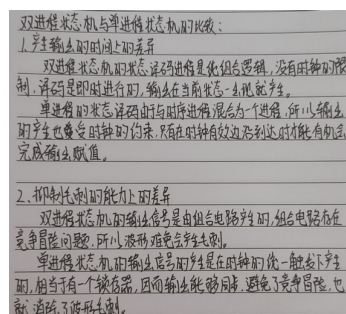 双进程状态机与单进程状态机的比较：
1.产生输出的时间上的差异
双进程状态机的状态译码进程是纯组合逻辑，没有时钟的限
制，译码是即时进行的，输出在当前状态一出现就产生。
单进程的状态译码由于与时序进程混合为一个进程，所以输出
的产生也要受时钟的约束，只有在时钟有效边沿到达时才能有机会
完成输出赋值。
2、抑制毛刺的能力上的差异
双进程状态机的输出信号是由组合电路产生的，组合电路存在
竞争冒险问题，所以波形难免会产生毛刺。
单进程状态机的输出信号的产生是在时钟的统一触发下产生
的，相当于有一个锁存器，因而输出能够同步，避免了竞争冒险，也
就消除了波形毛刺。